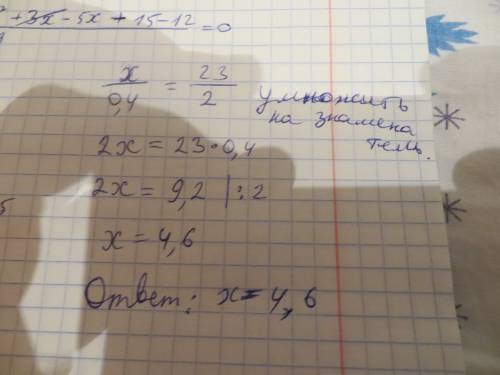 +3x - 5x + 15 - 12 = 0
x/0,4 = 23/2
умножить
на знамена
тель.
2x = 23·0,4
2x = 9,2 | : 2
x = 4,6
Ответ: x = 4,6